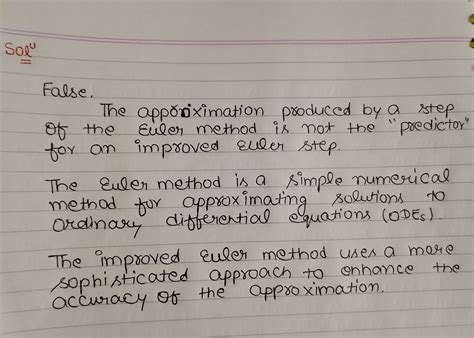 Solⁿ
False.
The approximation produced by a step
of the Euler method is not the "predictor"
for an improved Euler step.
The Euler method is a simple numerical
method for approximating solutions to
Ordinary differential equations (ODEs).
The improved Euler method uses a more
sophisticated approach to enhance the
accuracy of the approximation.